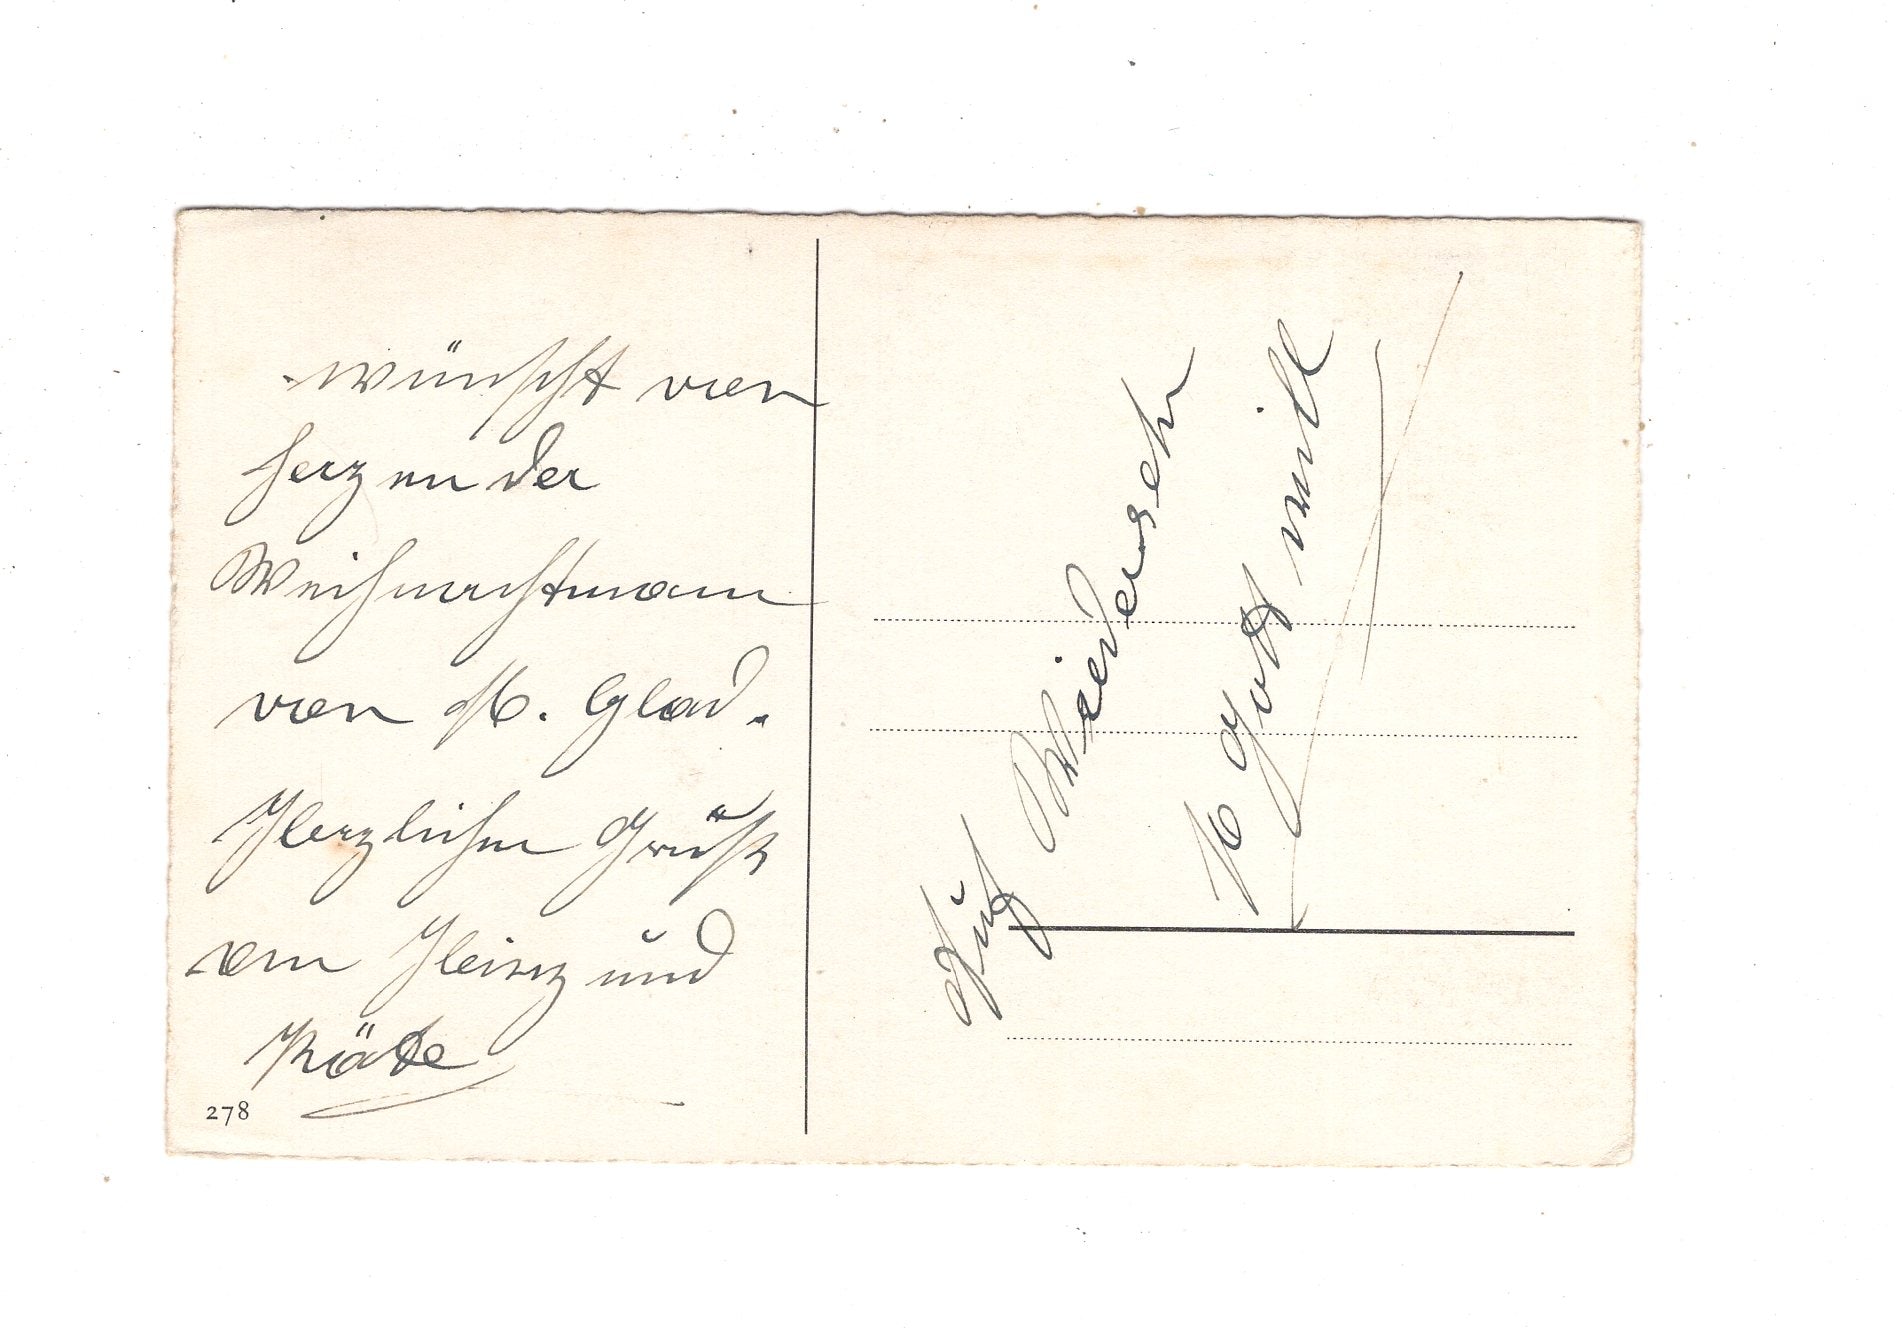 wünscht von
Herzen der
Weihnachtmann
von M. Glad.
Herzlichen Gruß
an Heinz und
Käte
278
Auf Wiedersehn
so Gott will